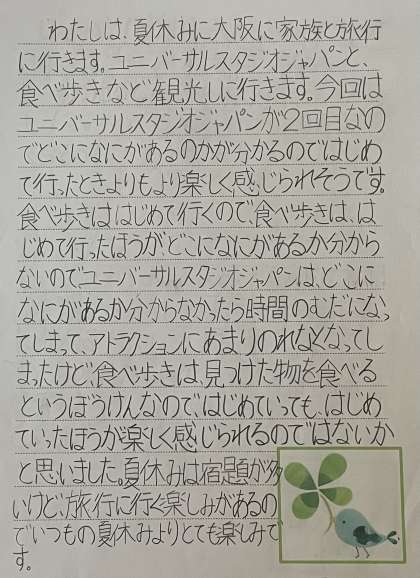 わたしは、夏休みに大阪に家族と旅行
に行きます。ユニバーサルスタジオジャパンと、
食べ歩きなど観光しに行きます。今回は
ユニバーサルスタジオジャパンが2回目なの
でどこになにがあるのかが分かるのではじめ
て行ったときよりもより楽しく感じられそうです。
食べ歩きは、はじめて行くので、食べ歩きは、は
じめて行ったほうが、どこになにがあるか分から
ないのでユニバーサルスタジオジャパンは、どこに
なにがあるか分からなかったら時間のむだになっ
てしまって、アトラクションにあまりのれなくなってし
まったけど、食べ歩きは、見つけた物を食べる
というぼうけんなので、はじめていっても、はじめ
ていったほうが楽しく感じられるのではないか
と思いました。夏休みは宿題が多
いけど、旅行に行く楽しみがあるの
でいつもの夏休みよりとても楽しみで
す。